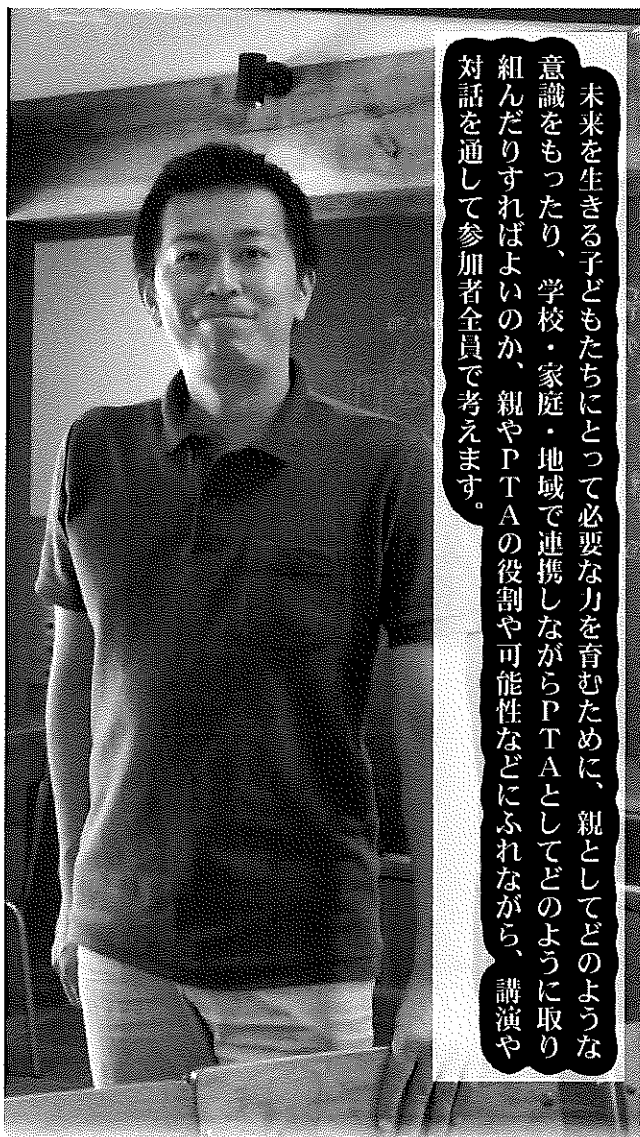 未来を生きる子どもたちにとって必要な力を育むために、親としてどのような
意識をもったり、学校・家庭・地域で連携しながらＰＴＡとしてどのように取り
組んだりすればよいのか、親やＰＴＡの役割や可能性などにふれながら、講演や
対話を通して参加者全員で考えます。